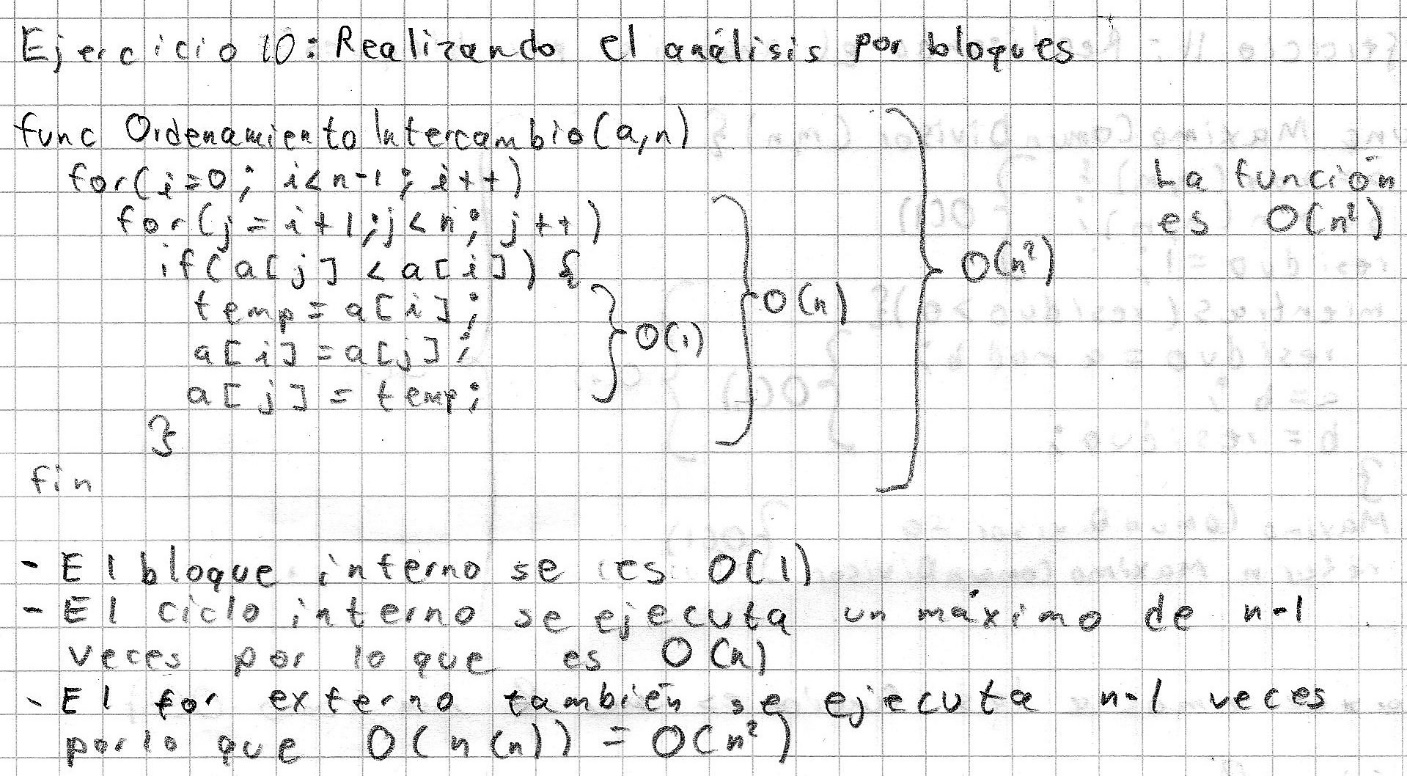 Ejercicio 10: Realizando el análisis por bloques
func Ordenamiento Intercambio(a,n)
for(i=0; i<n-1; i++)
for(j=i+1;j<n; j++)
if(a[j] < a[i]) {
temp = a[i];
a[i] = a[j];
a[j] = temp;
}
fin
O(1)
O(n)
O(n²)
La función
es O(n²)
- El bloque interno se es O(1)
- El ciclo interno se ejecuta un máximo de n-1
veces por lo que es O(n)
- El for externo también se ejecuta n-1 veces
por lo que O(n(n)) = O(n²)